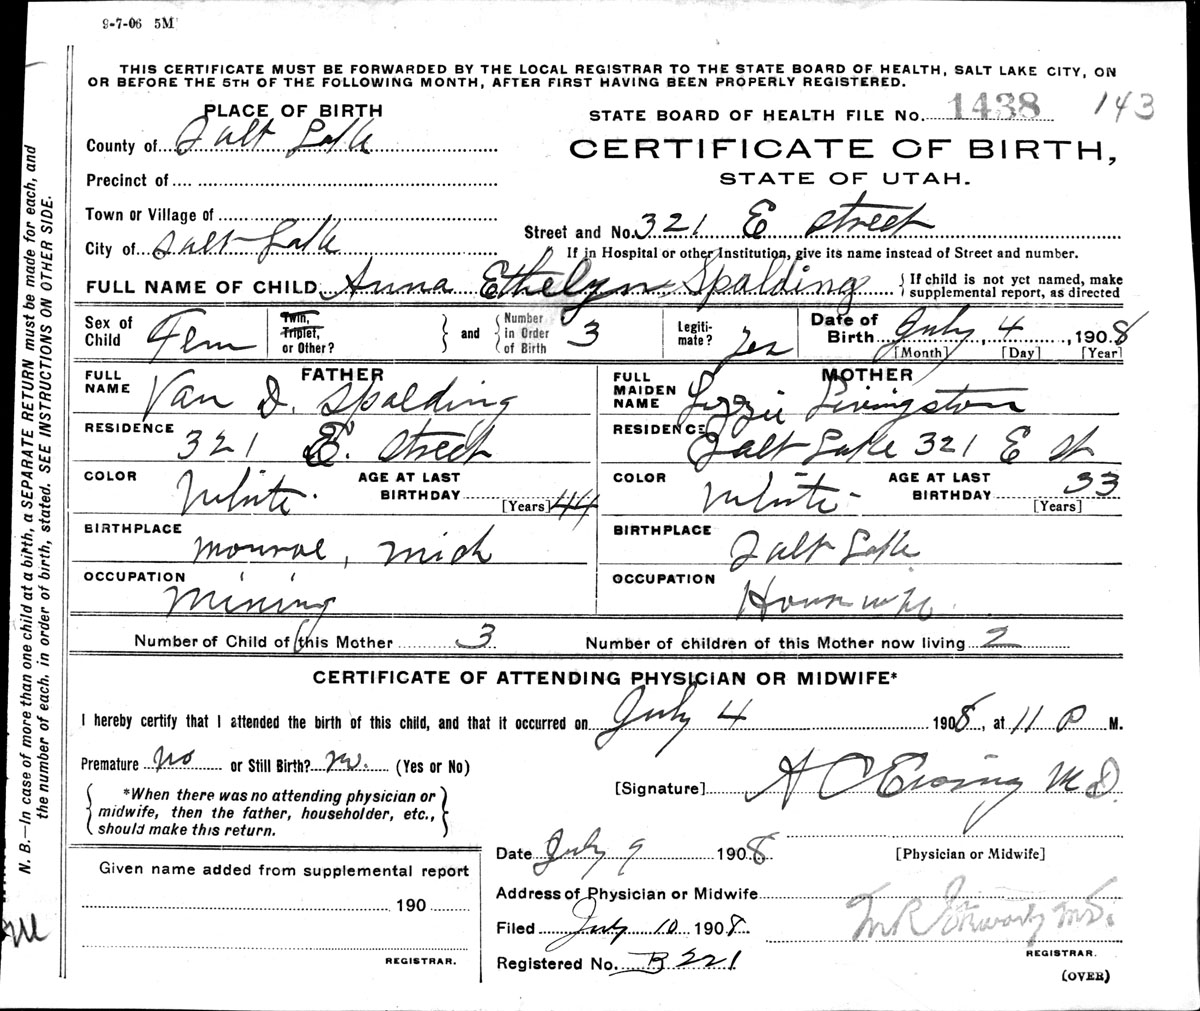 9-7-06 5M
THIS CERTIFICATE MUST BE FORWARDED BY THE LOCAL REGISTRAR TO THE STATE BOARD OF HEALTH, SALT LAKE CITY, ON
OR BEFORE THE 5TH OF THE FOLLOWING MONTH, AFTER FIRST HAVING BEEN PROPERLY REGISTERED.
PLACE OF BIRTH
STATE BOARD OF HEALTH FILE No. 1438 143
County of Salt Lake
CERTIFICATE OF BIRTH,
STATE OF UTAH.
Precinct of
Town or Village of
Street and No. 321 E Street
City of Salt Lake
If in Hospital or other Institution, give its name instead of Street and number.
FULL NAME OF CHILD Anna Ethelyn Spalding { If child is not yet named, make
supplemental report, as directed
Sex of Child Fem
Twin, Triplet, or Other? } and { Number in Order of Birth 3
Legiti-mate? Yes
Date of Birth July 4, 1908
[Month] [Day] [Year]
FATHER
FULL NAME Van D. Spalding
RESIDENCE 321 E. Street
COLOR White. AGE AT LAST BIRTHDAY 44 [Years]
BIRTHPLACE Monroe, Mich
OCCUPATION Mining
MOTHER
FULL MAIDEN NAME Lizzie Livingston
RESIDENCE Salt Lake 321 E St
COLOR White - AGE AT LAST BIRTHDAY 33 [Years]
BIRTHPLACE Salt Lake
OCCUPATION Housewife
Number of Child of this Mother 3 Number of children of this Mother now living 2
CERTIFICATE OF ATTENDING PHYSICIAN OR MIDWIFE*
I hereby certify that I attended the birth of this child, and that it occurred on July 4 1908, at 11 P M.
Premature no or Still Birth? no. (Yes or No)
[Signature] A C Ewing M D.
*When there was no attending physician or
midwife, then the father, householder, etc.,
should make this return.
Date July 9 1908
[Physician or Midwife]
Given name added from supplemental report
190
REGISTRAR.
Address of Physician or Midwife
Filed July 10 1908
M R Stewart M.D.
REGISTRAR.
Registered No. B 221
(OVER)
N. B.—In case of more than one child at a birth, a SEPARATE RETURN must be made for each, and
the number of each, in order of birth, stated. SEE INSTRUCTIONS ON OTHER SIDE.